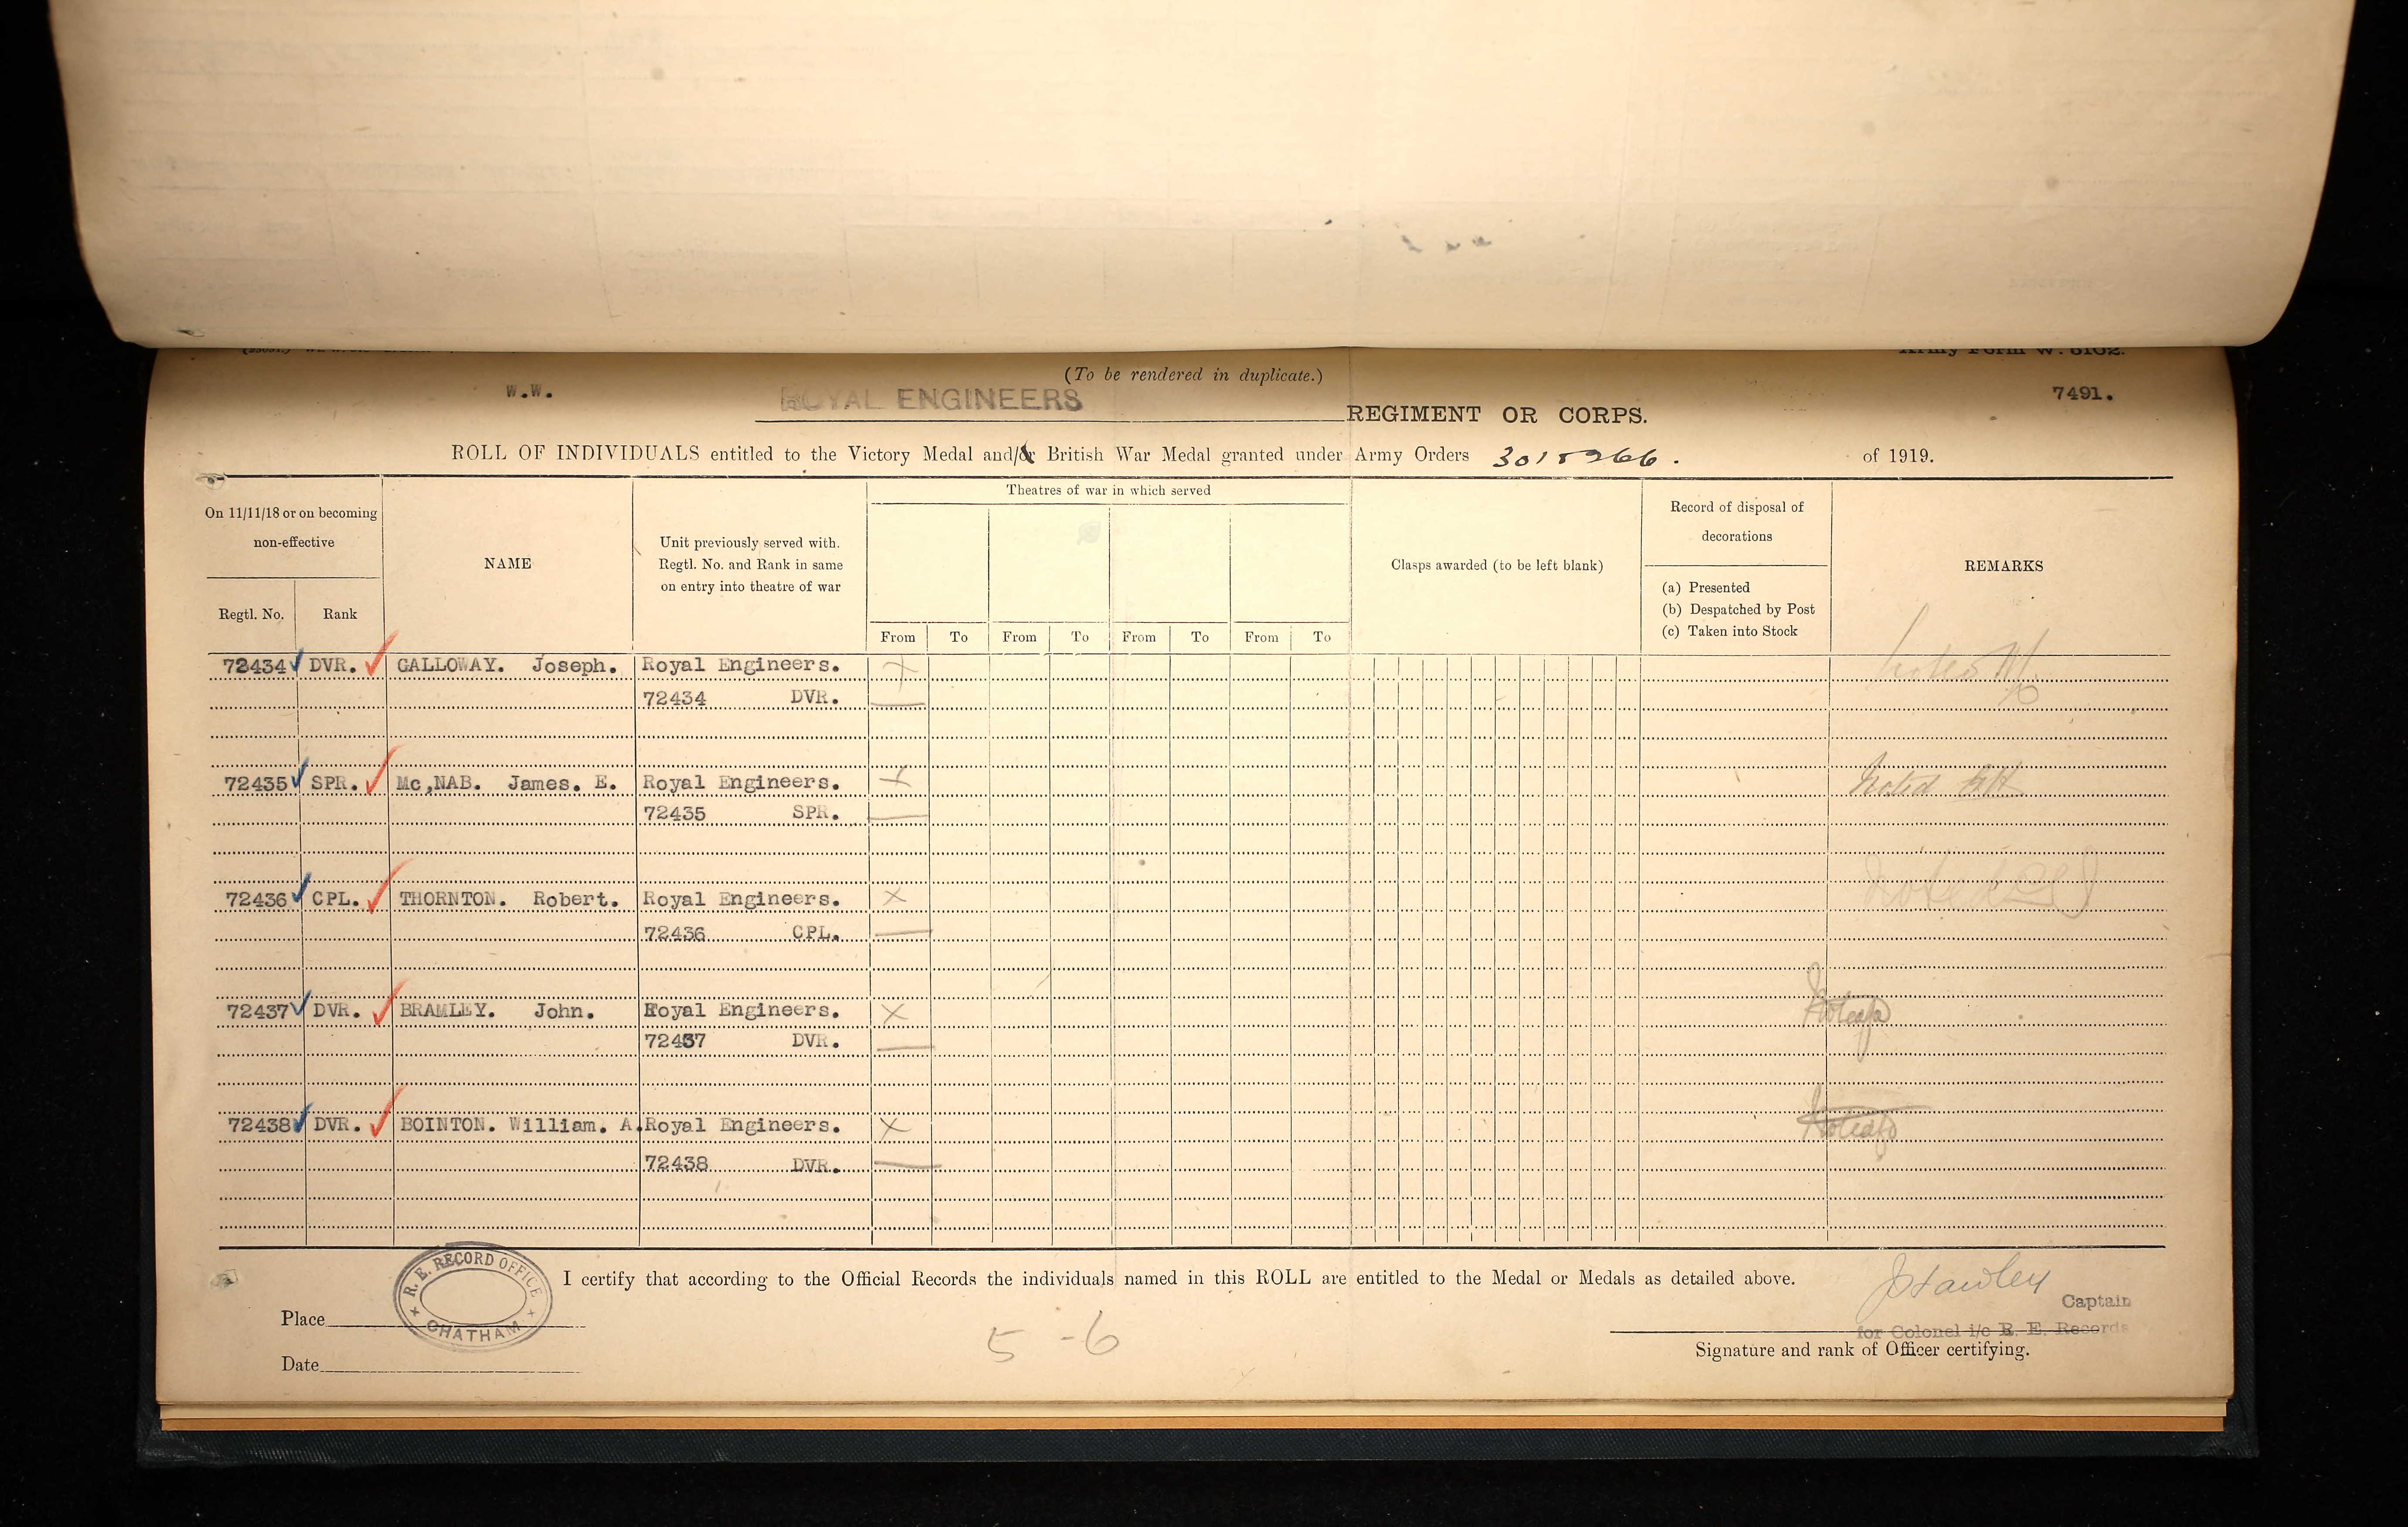 Army Form W. 5102.
(To be rendered in duplicate.)
W.W. ROYAL ENGINEERS REGIMENT OR CORPS. 7491.
ROLL OF INDIVIDUALS entitled to the Victory Medal and/or British War Medal granted under Army Orders 301 & 266. of 1919.
On 11/11/18 or on becoming non-effective
Regtl. No. Rank
NAME
Unit previously served with.
Regtl. No. and Rank in same
on entry into theatre of war
Theatres of war in which served
From To From To From To From To
Clasps awarded (to be left blank)
Record of disposal of
decorations
(a) Presented
(b) Despatched by Post
(c) Taken into Stock
REMARKS
72434 DVR. GALLOWAY. Joseph. Royal Engineers. X Noted
72434 DVR.
72435 SPR. Mc,NAB. James. E. Royal Engineers. X Noted
72435 SPR.
72436 CPL. THORNTON. Robert. Royal Engineers. X Noted
72436 CPL.
72437 DVR. BRAMLEY. John. Royal Engineers. X Noted
72437 DVR.
72438 DVR. BOINTON. William. A. Royal Engineers. X Noted
72438 DVR.
R. E. RECORD OFFICE
CHATHAM
I certify that according to the Official Records the individuals named in this ROLL are entitled to the Medal or Medals as detailed above.
Captain
Place
for Colonel i/c R. E. Records
5-6
Signature and rank of Officer certifying.
Date